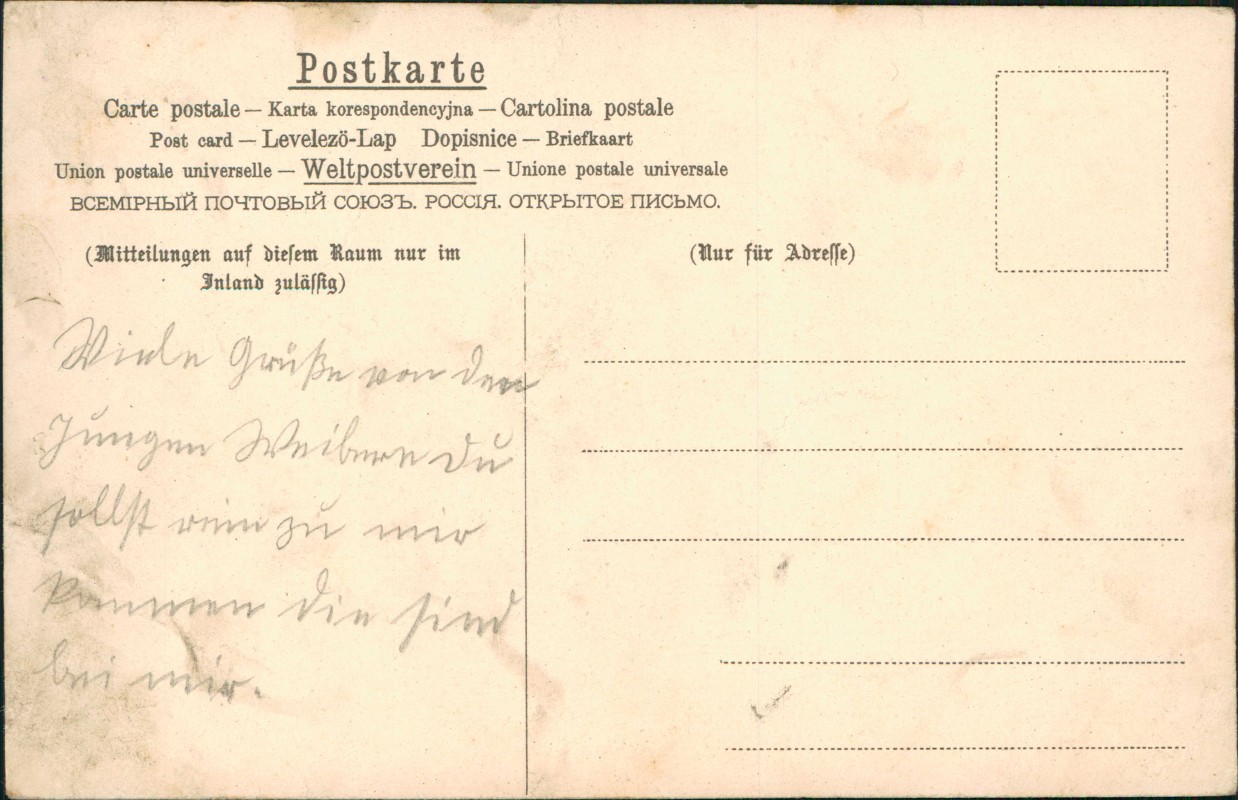 Postkarte
Carte postale — Karta korespondencyjna — Cartolina postale
Post card — Levelezö-Lap Dopisnice — Briefkaart
Union postale universelle — Weltpostverein — Unione postale universale
ВСЕМІРНЫЙ ПОЧТОВЫЙ СОЮЗЪ. РОССІЯ. ОТКРЫТОЕ ПИСЬМО.
(Mitteilungen auf diesem Raum nur im
Inland zulässig)
(Nur für Adresse)
Viele Grüße von den
Jungen Weibern Du
sollst zu mir
kommen die sind
bei mir.